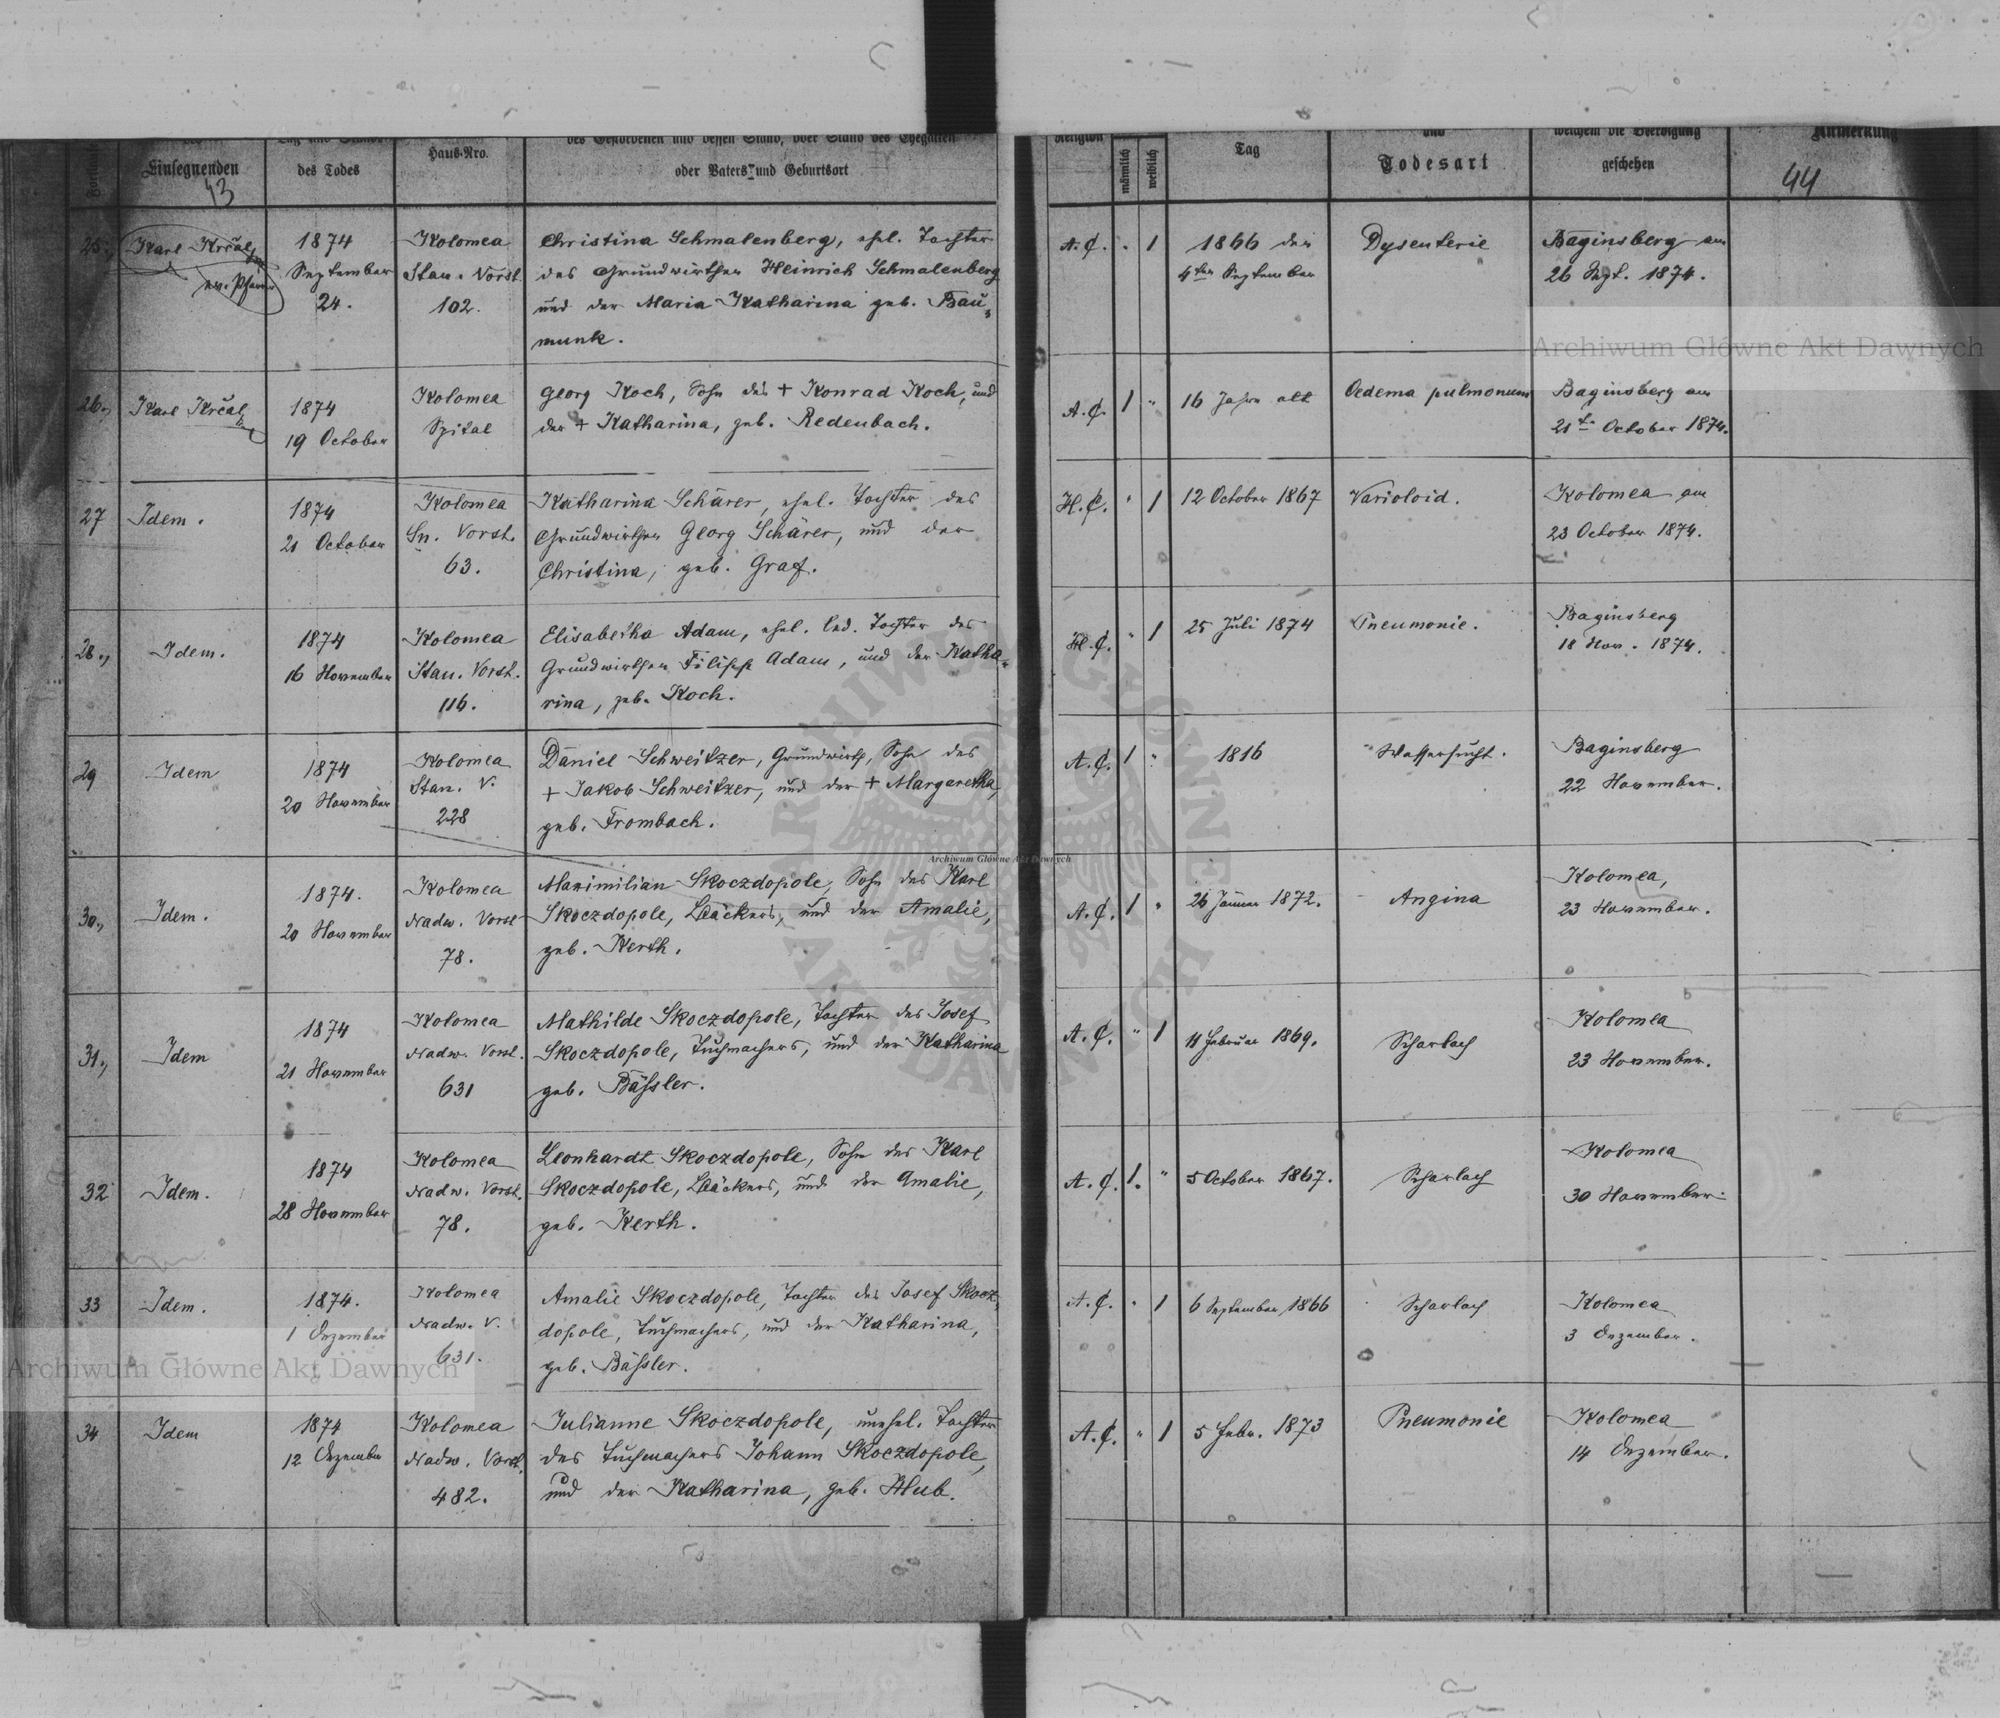 des Gestorbenen und dessen Stand, oder Stand des Ehegatten
Einsegnenden
des Todes
Haus-Nro.
oder Vaters und Geburtsort
43
Religion
männlich
weiblich
Tag
und
Todesart
welchem die Beerdigung
geschehen
Anmerkung
44
25.,
Karl Krčal
ev. Pfarrer
1874
September
24.
Kolomea
Stan. Vorst.
102.
Christina Schmalenberg, ehel. Tochter
des Grundwirthen Heinrich Schmalenberg
und der Maria Katharina geb. Bau-
munk.
A. C.
"
1
1866 den
4ten September
Dysenterie
Baginsberg am
26 Sept. 1874.
26.,
Karl Krčal
1874
19 October
Kolomea
Spital
Georg Koch, Sohn des + Konrad Koch, und
der + Katharina, geb. Redenbach.
A. C.
1
"
16 Jahre alt
Oedema pulmonum
Baginsberg am
21t. October 1874.
27
Idem.
1874
21 October
Kolomea
Sn. Vorst.
63.
Katharina Schärer, ehel. Tochter des
Grundwirthen Georg Schärer, und der
Christina, geb. Graf.
H. C.
"
1
12 October 1867
Varioloid.
Kolomea am
23 October 1874.
28.,
Idem.
1874
16 November
Kolomea
Stan. Vorst.
116.
Elisabetha Adam, ehel. led. Tochter des
Grundwirthen Filipp Adam, und der Katha-
rina, geb. Koch.
H. C.
"
1
25 Juli 1874
Pneumonie.
Baginsberg
18 Nov. 1874.
29
Idem
1874
20 November
Kolomea
Stan. V.
228
Daniel Schweitzer, Grundwirth, Sohn des
+ Jakob Schweitzer, und der + Margaretha,
geb. Frombach.
A. C.
1
"
1816
Wassersucht.
Baginsberg
22 November.
30.,
Idem.
1874.
20 November
Kolomea
Nadw. Vorst
78.
Maximilian Skoczdopole, Sohn des Karl
Skoczdopole, Bäckers, und der Amalie,
geb. Kerth.
A. C.
1
"
26 Jänner 1872.
Angina
Kolomea,
23 November.
31.,
Idem
1874
21 November
Kolomea
Nadw. Vorst.
631
Mathilde Skoczdopole, Tochter des Josef
Skoczdopole, Tuchmachers, und der Katharina
geb. Bässler.
A. C.
"
1
11 Februar 1869.
Scharlach
Kolomea
23 November.
32
Idem.
1874
28 November
Kolomea
Nadw. Vorst.
78.
Leonhardt Skoczdopole, Sohn des Karl
Skoczdopole, Bäckers, und der Amalie,
geb. Kerth.
A. C.
1.
"
5 October 1867.
Scharlach
Kolomea
30 November.
33
Idem.
1874.
1 Dezember
Kolomea
Nadw. V.
631.
Amalie Skoczdopole, Tochter des Josef Skocz-
dopole, Tuchmachers, und der Katharina,
geb. Bässler.
A. C.
"
1
6 September 1866
Scharlach
Kolomea
3 Dezember.
34
Idem
1874
12 Dezember
Kolomea
Nadw. Vorst.
482.
Julianne Skoczdopole, unehel. Tochter
des Tuchmachers Johann Skoczdopole,
und der Katharina, geb. Hlub.
A. C.
"
1
5 Febr. 1873
Pneumonie
Kolomea
14 Dezember.
Archiwum Główne Akt Dawnych
Archiwum Główne Akt Dawnych
Archiwum Główne Akt Dawnych